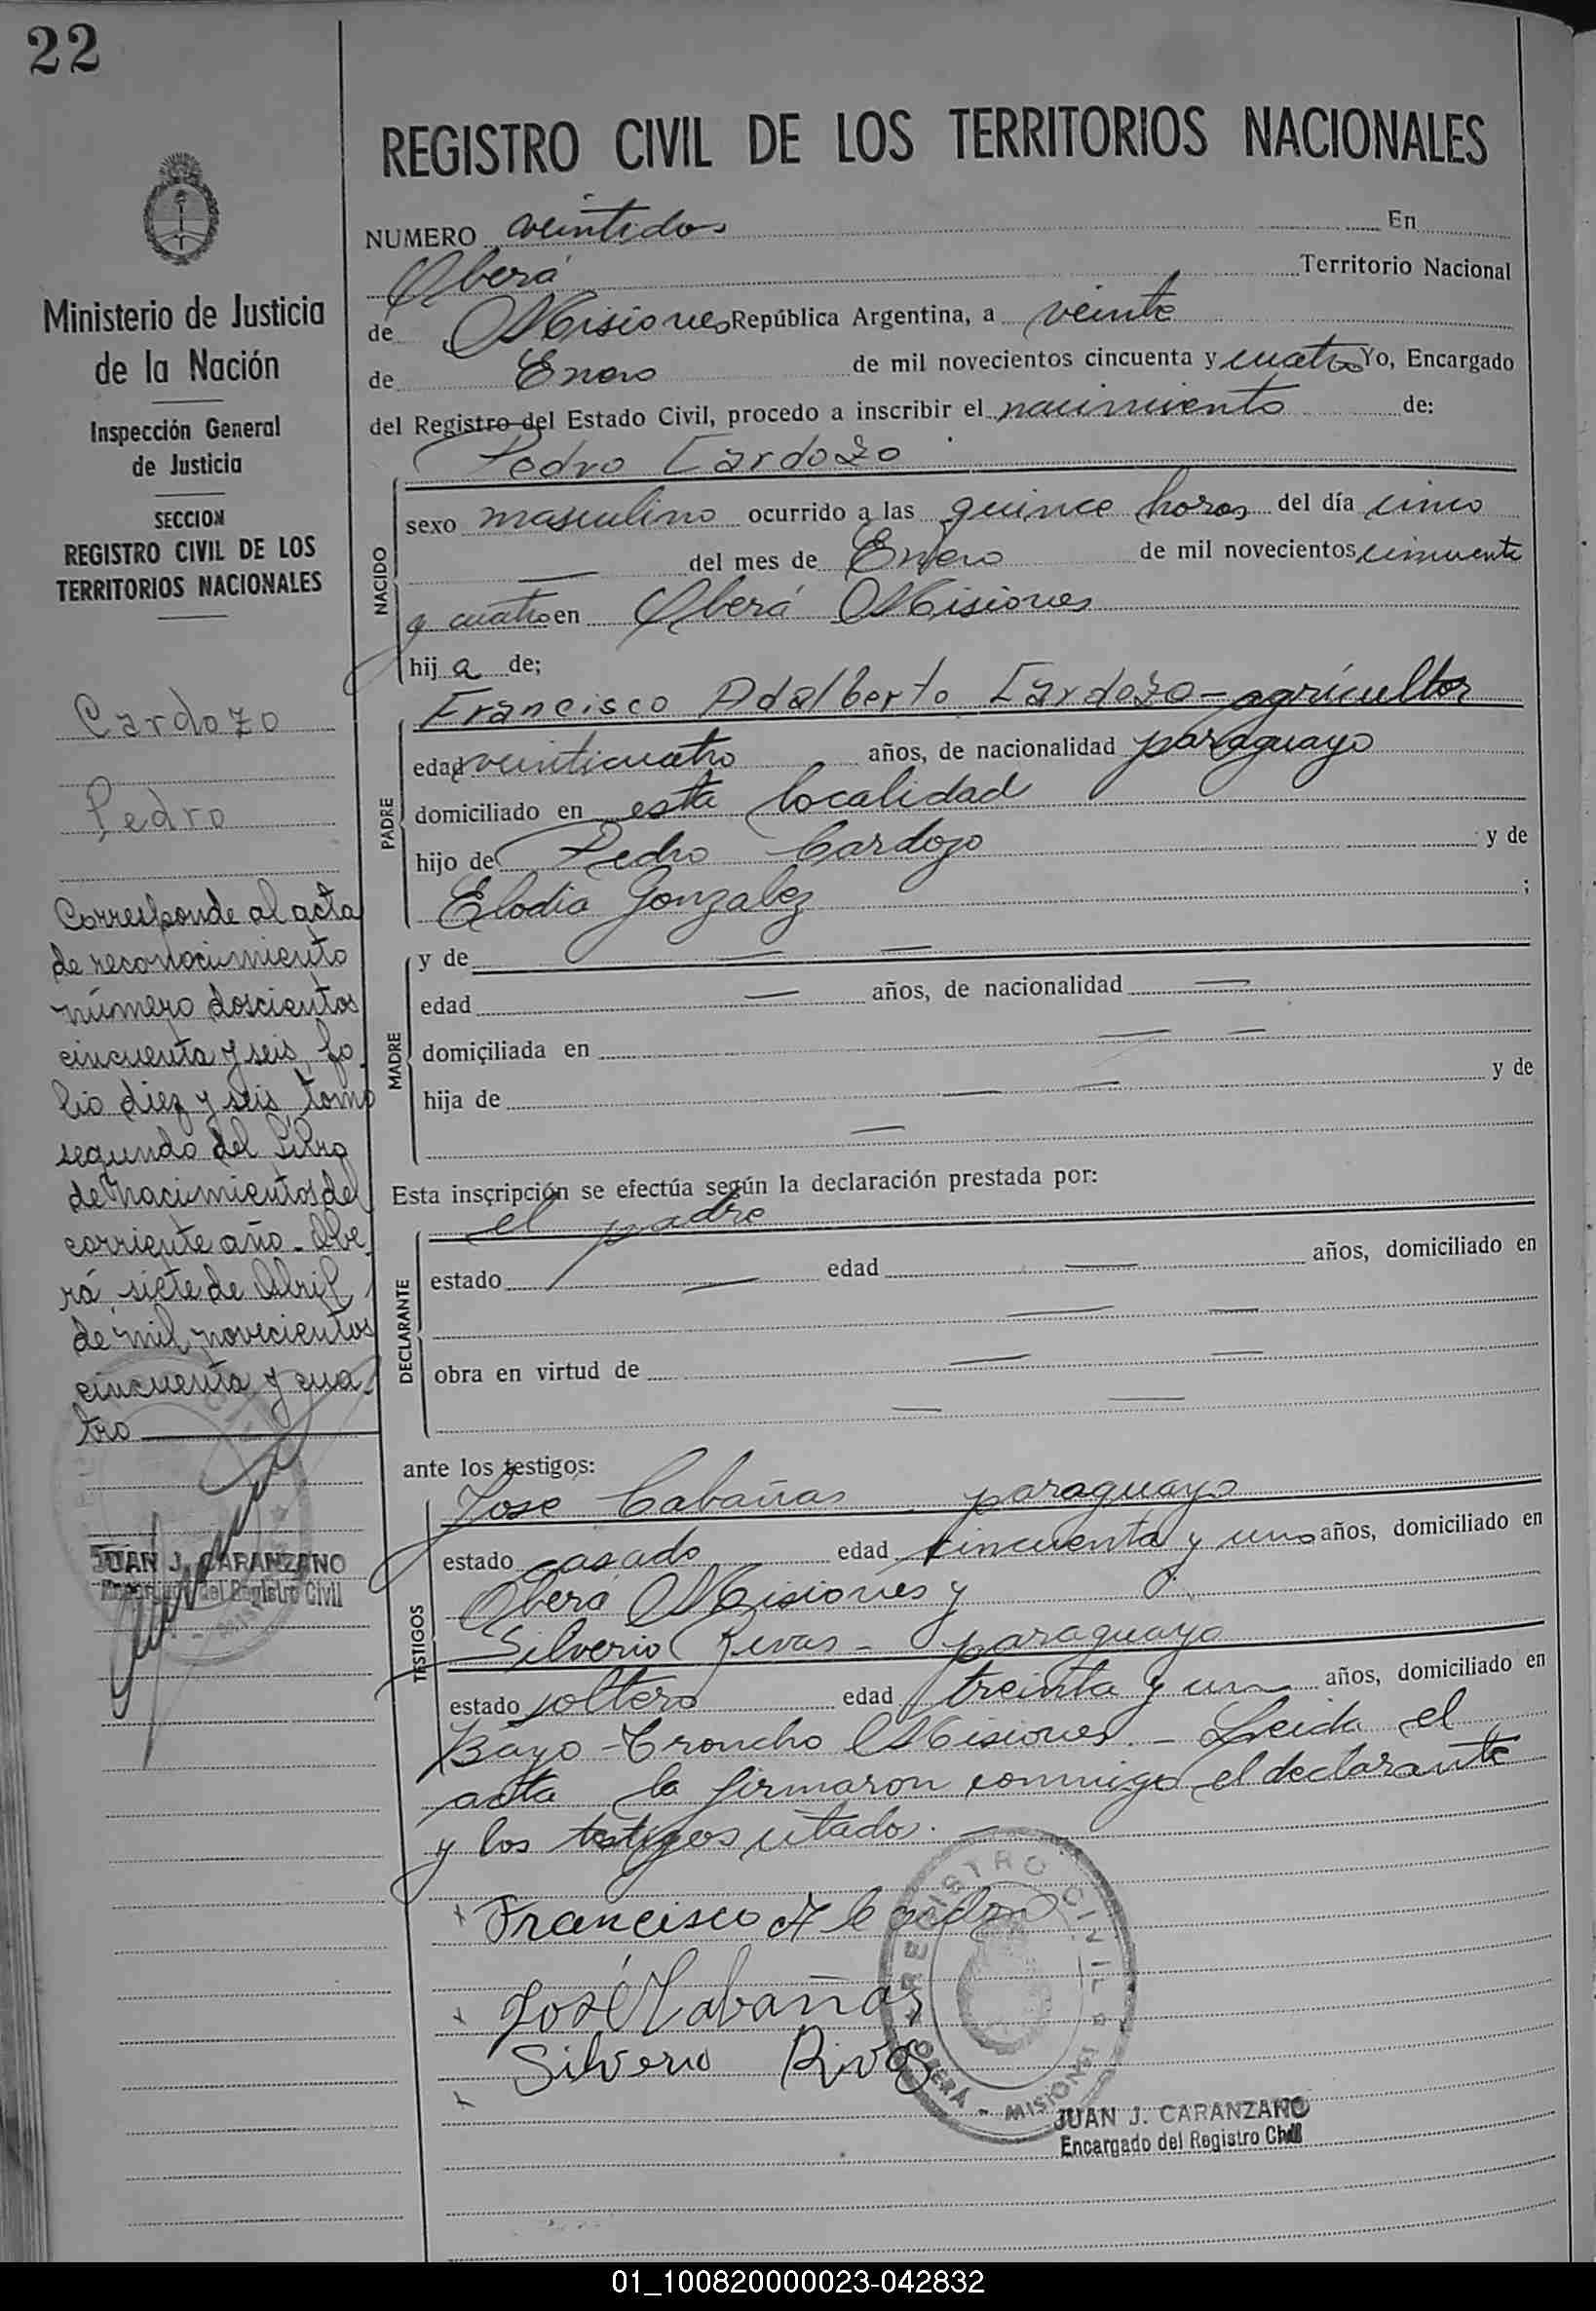 22
REGISTRO CIVIL DE LOS TERRITORIOS NACIONALES
NUMERO veintidos En
Oberá Territorio Nacional
de Misiones República Argentina, a veinte
de Enero de mil novecientos cincuenta y cuatro Yo, Encargado
del Registro del Estado Civil, procedo a inscribir el nacimiento de:
Pedro Cardozo
NACIDO
sexo masculino ocurrido a las quince horas del día cinco
— del mes de Enero de mil novecientos cincuenta
y cuatro en Oberá Misiones
hij a de;
PADRE
Francisco Adalberto Cardozo - agricultor
edad veinticuatro años, de nacionalidad paraguayo
domiciliado en esta localidad
hijo de Pedro Cardozo y de
Elodia Gonzalez ;
MADRE
y de — —
edad — años, de nacionalidad —
domiciliada en — —
hija de — — y de
—
Esta inscripción se efectúa según la declaración prestada por:
DECLARANTE
el padre
estado — edad — años, domiciliado en
— —
obra en virtud de — —
— —
ante los testigos:
TESTIGOS
Jose Cabañas paraguayo
estado casado edad cincuenta y uno años, domiciliado en
Oberá Misiones y
Silverio Rivas - paraguayo
estado soltero edad treinta y un años, domiciliado en
Bayo-Troncho Misiones. - Leida el
acta la firmaron conmigo el declarante
y los testigos citados. -
Francisco A Cardozo
José Cabañas
Silverio Rivas
REGISTRO CIVIL
OBERÁ - MISIONES
JUAN J. CARANZANO
Encargado del Registro Civil
Ministerio de Justicia
de la Nación
Inspección General
de Justicia
SECCION
REGISTRO CIVIL DE LOS
TERRITORIOS NACIONALES
Cardozo
Pedro
Corresponde al acta
de reconocimiento
número doscientos
cincuenta y seis, fo
lio diez y seis, tomo
segundo del Libro
de Nacimientos del
corriente año. Obe
rá, siete de Abril
de mil novecientos
cincuenta y cua
tro
JUAN J. CARANZANO
Encargado del Registro Civil
01_100820000023-042832